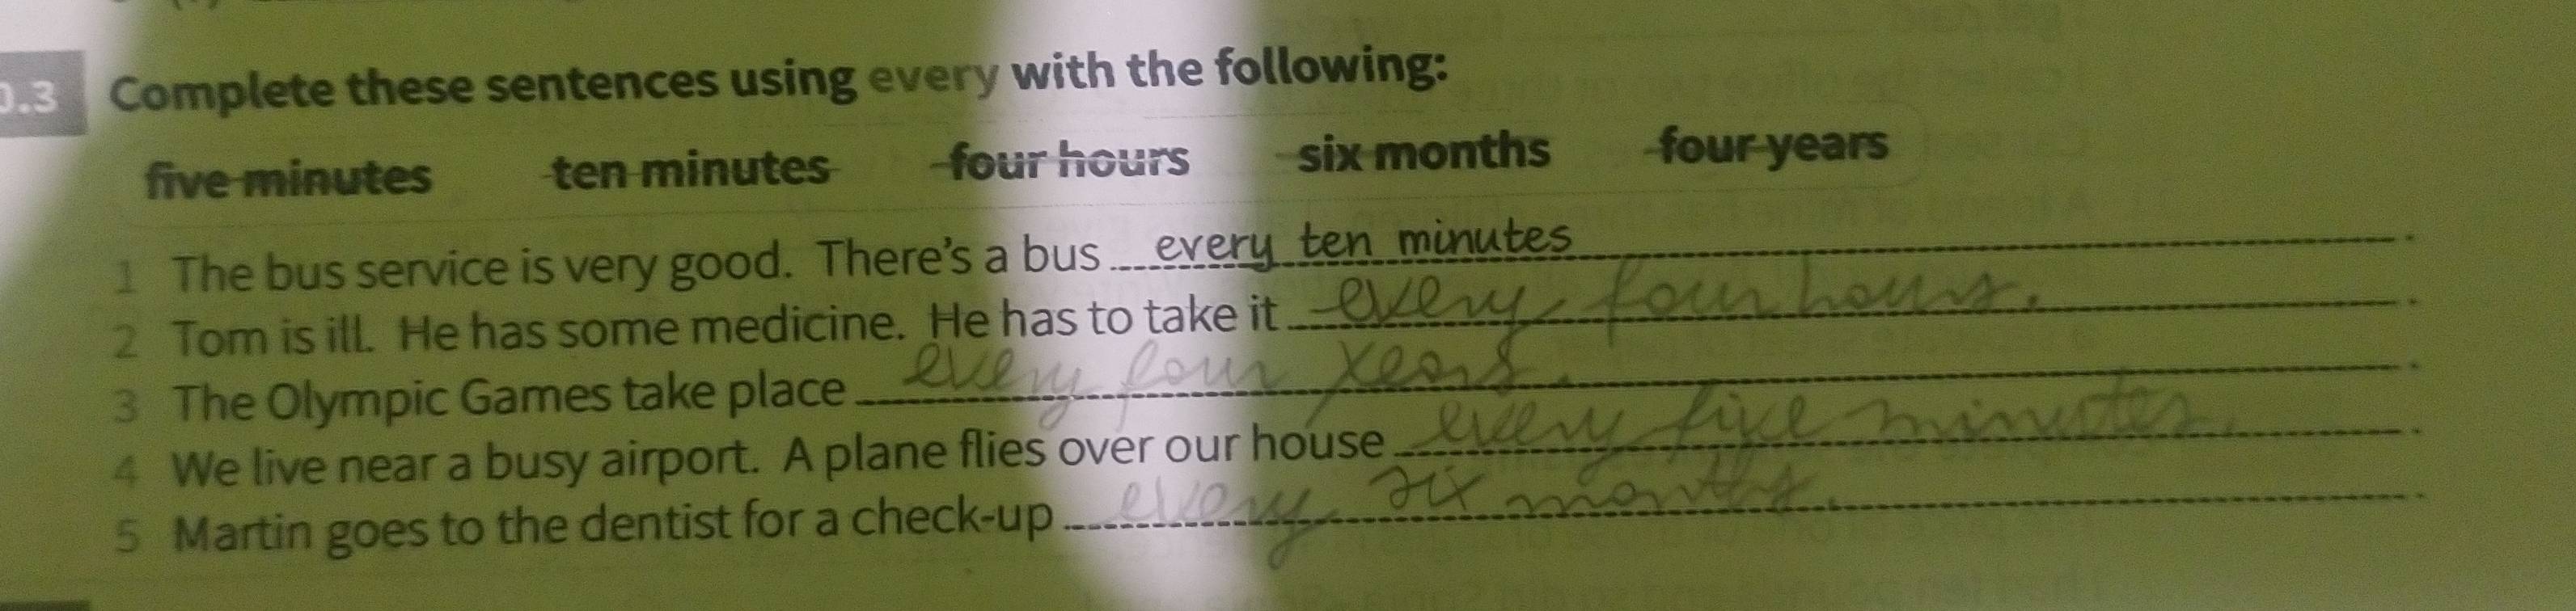 0.3 Complete these sentences using every with the following:
five minutes ten minutes four hours six months four years
1 The bus service is very good. There's a bus every ten minutes.
2 Tom is ill. He has some medicine. He has to take it every four hours.
3 The Olympic Games take place every four years.
4 We live near a busy airport. A plane flies over our house every five minutes.
5 Martin goes to the dentist for a check-up every six months.